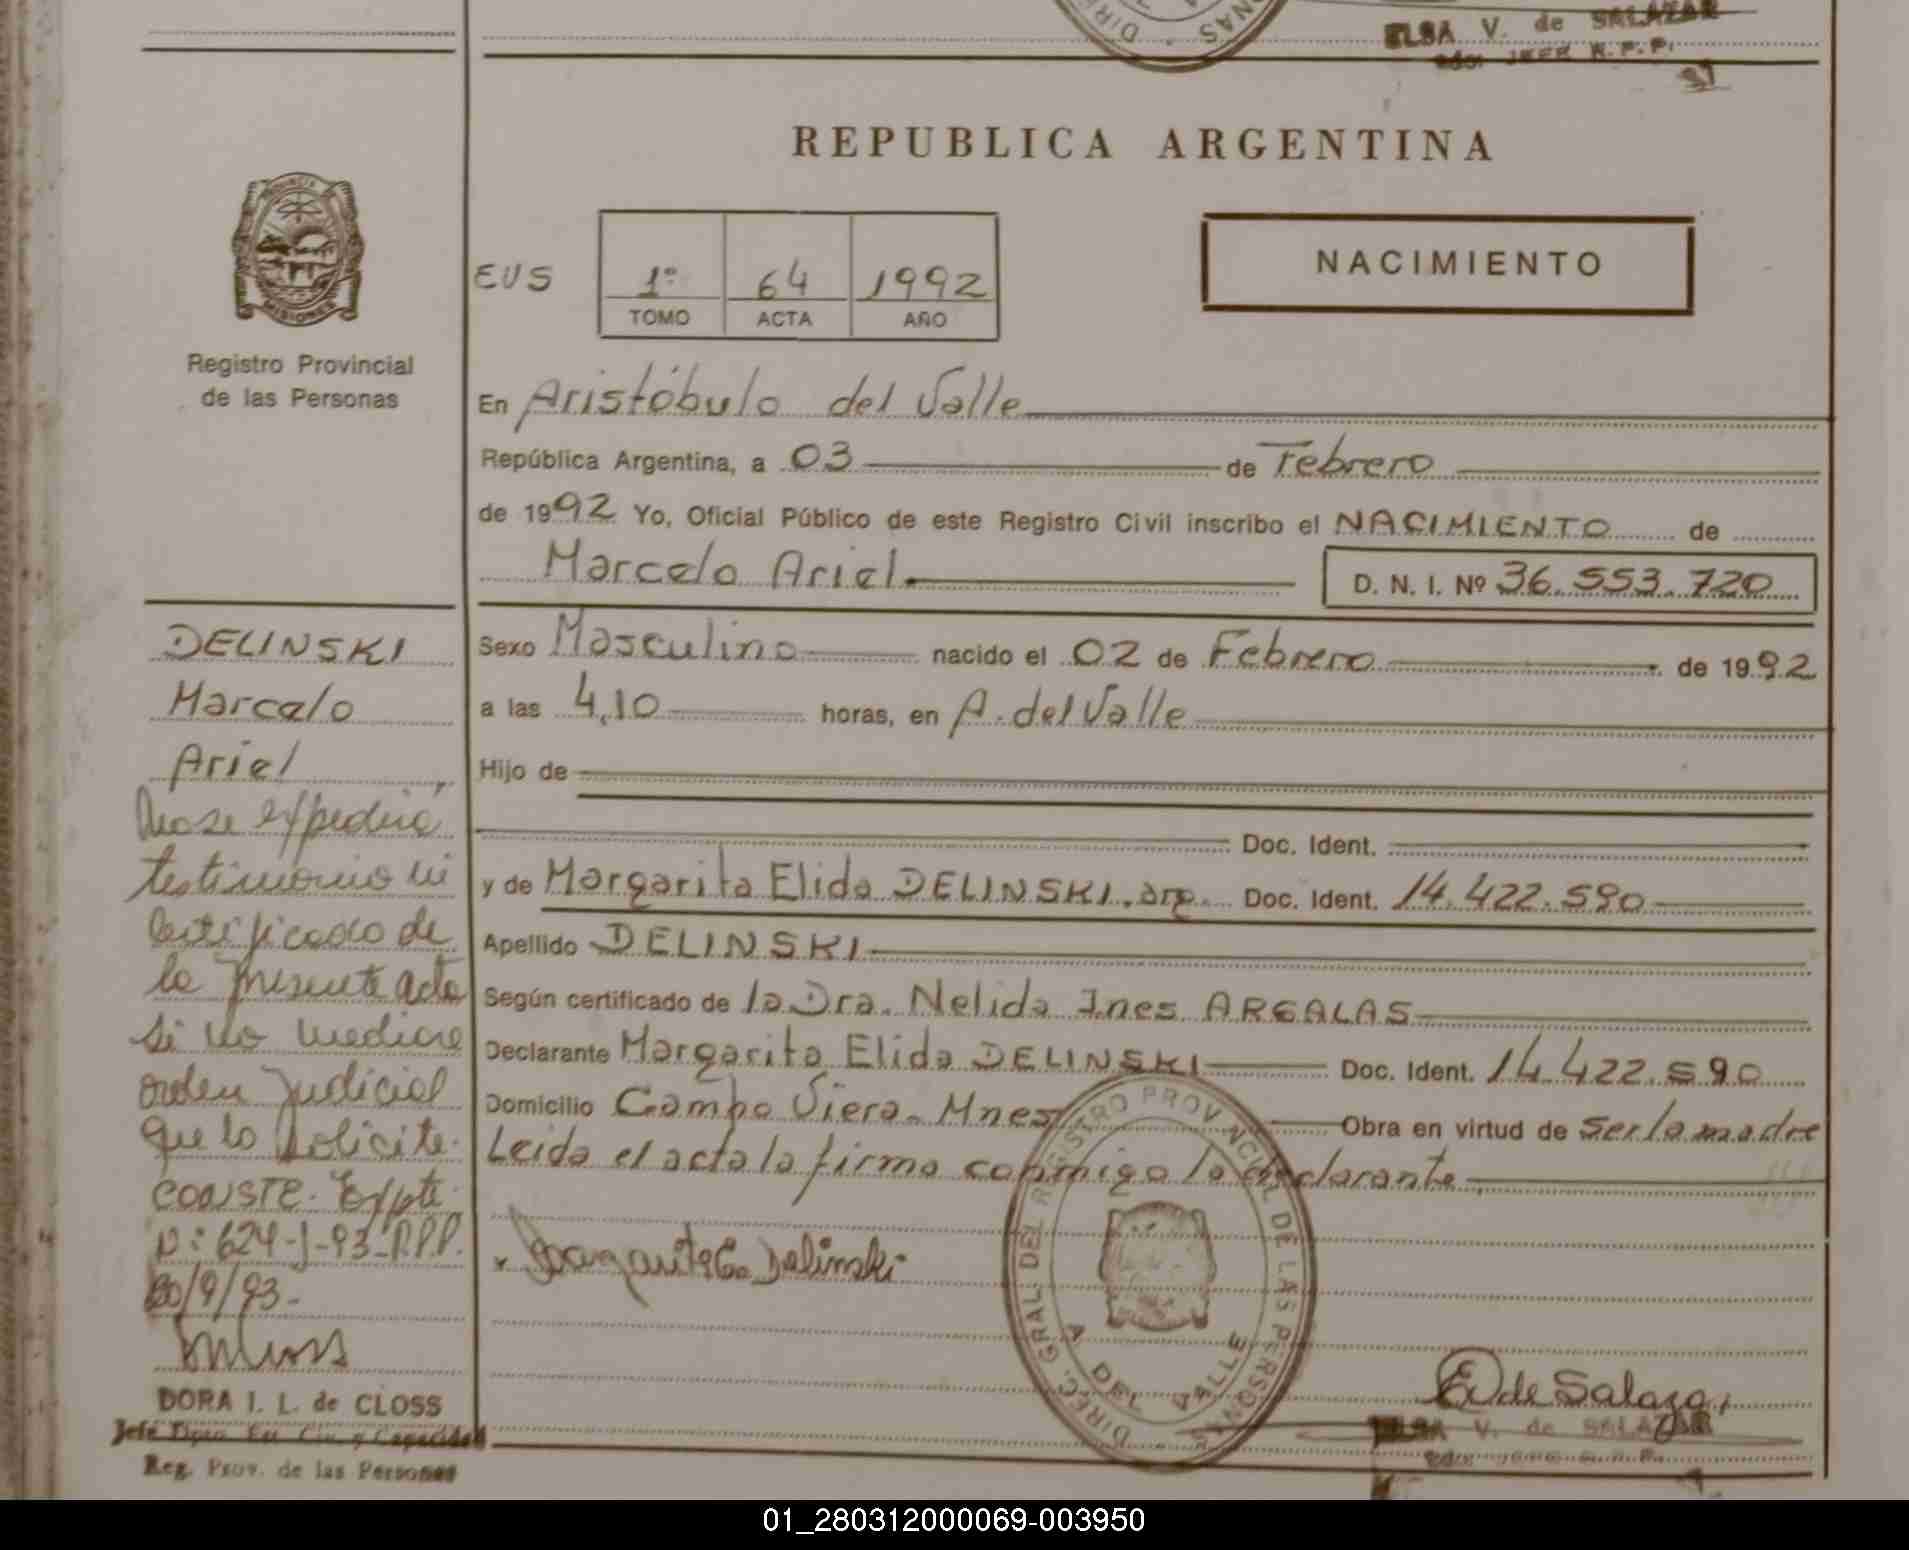 ELSA V. de SALAZAR
REPUBLICA ARGENTINA
PROVINCIA
MISIONES
Registro Provincial
de las Personas
EUS
1º 64 1992
TOMO ACTA AÑO
NACIMIENTO
En Aristóbulo del Valle
República Argentina, a 03 de Febrero
de 1992 Yo, Oficial Público de este Registro Civil inscribo el NACIMIENTO de
Marcelo Ariel D. N. I. Nº 36.553.720
Sexo Masculino nacido el 02 de Febrero de 1992
a las 4,10 horas, en A. del Valle
Hijo de
Doc. Ident.
y de Margarita Elida DELINSKI. arg. Doc. Ident. 14.422.590
Apellido DELINSKI
Según certificado de la Dra. Nelida Ines ARGALAS
Declarante Margarita Elida DELINSKI Doc. Ident. 14.422.590
Domicilio Campo Viera. Mnes Obra en virtud de Ser la madre
Leida el acta la firma conmigo la declarante
Margarita E. Delinski
DIREC. GRAL. DEL REGISTRO PROVINCIAL DE LAS PERSONAS
A DEL VALLE
E V de Salazar
ELSA V. de SALAZAR
DELINSKI
Marcelo
Ariel
No se expedirá
testimonio ni
certificado de
la presente acta
si no mediare
orden judicial
que lo solicite.
CONSTE. Expte.
Nº: 624-J-93-R.P.P.
20/9/93.-
DORA I. L. de CLOSS
Jefe Dpto. Est. Civ. y Capacidad
Reg. Prov. de las Personas
01_280312000069-003950